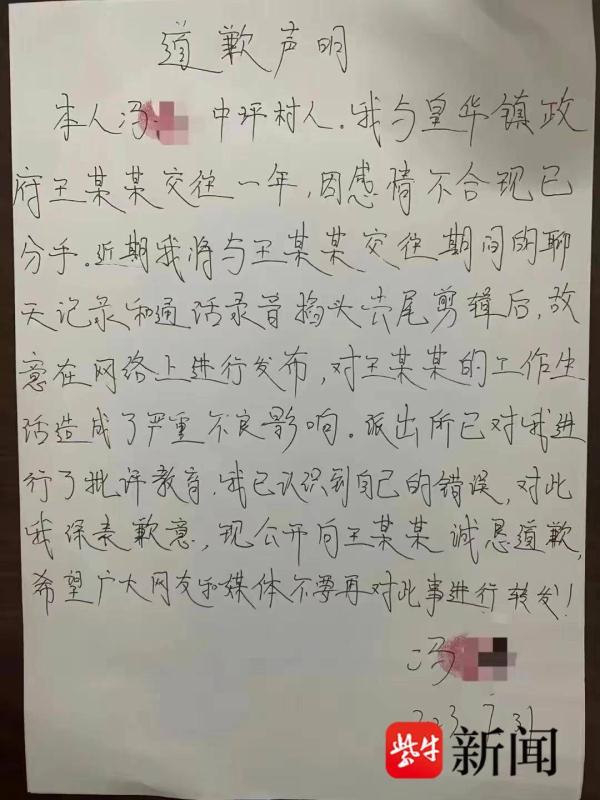 道歉声明
本人冯 中坪村人。我与皇华镇政
府王某某交往一年,因感情不合现已
分手。近期我将与王某某交往期间的聊
天记录和通话录音掐头去尾剪辑后,故
意在网络上进行发布,对王某某的工作生
活造成了严重不良影响。派出所已对我进
行了批评教育,我已认识到自己的错误,对此
我深表歉意,现公开向王某某诚恳道歉,
希望广大网友和媒体不要再对此事进行转发!
冯
紫牛新闻